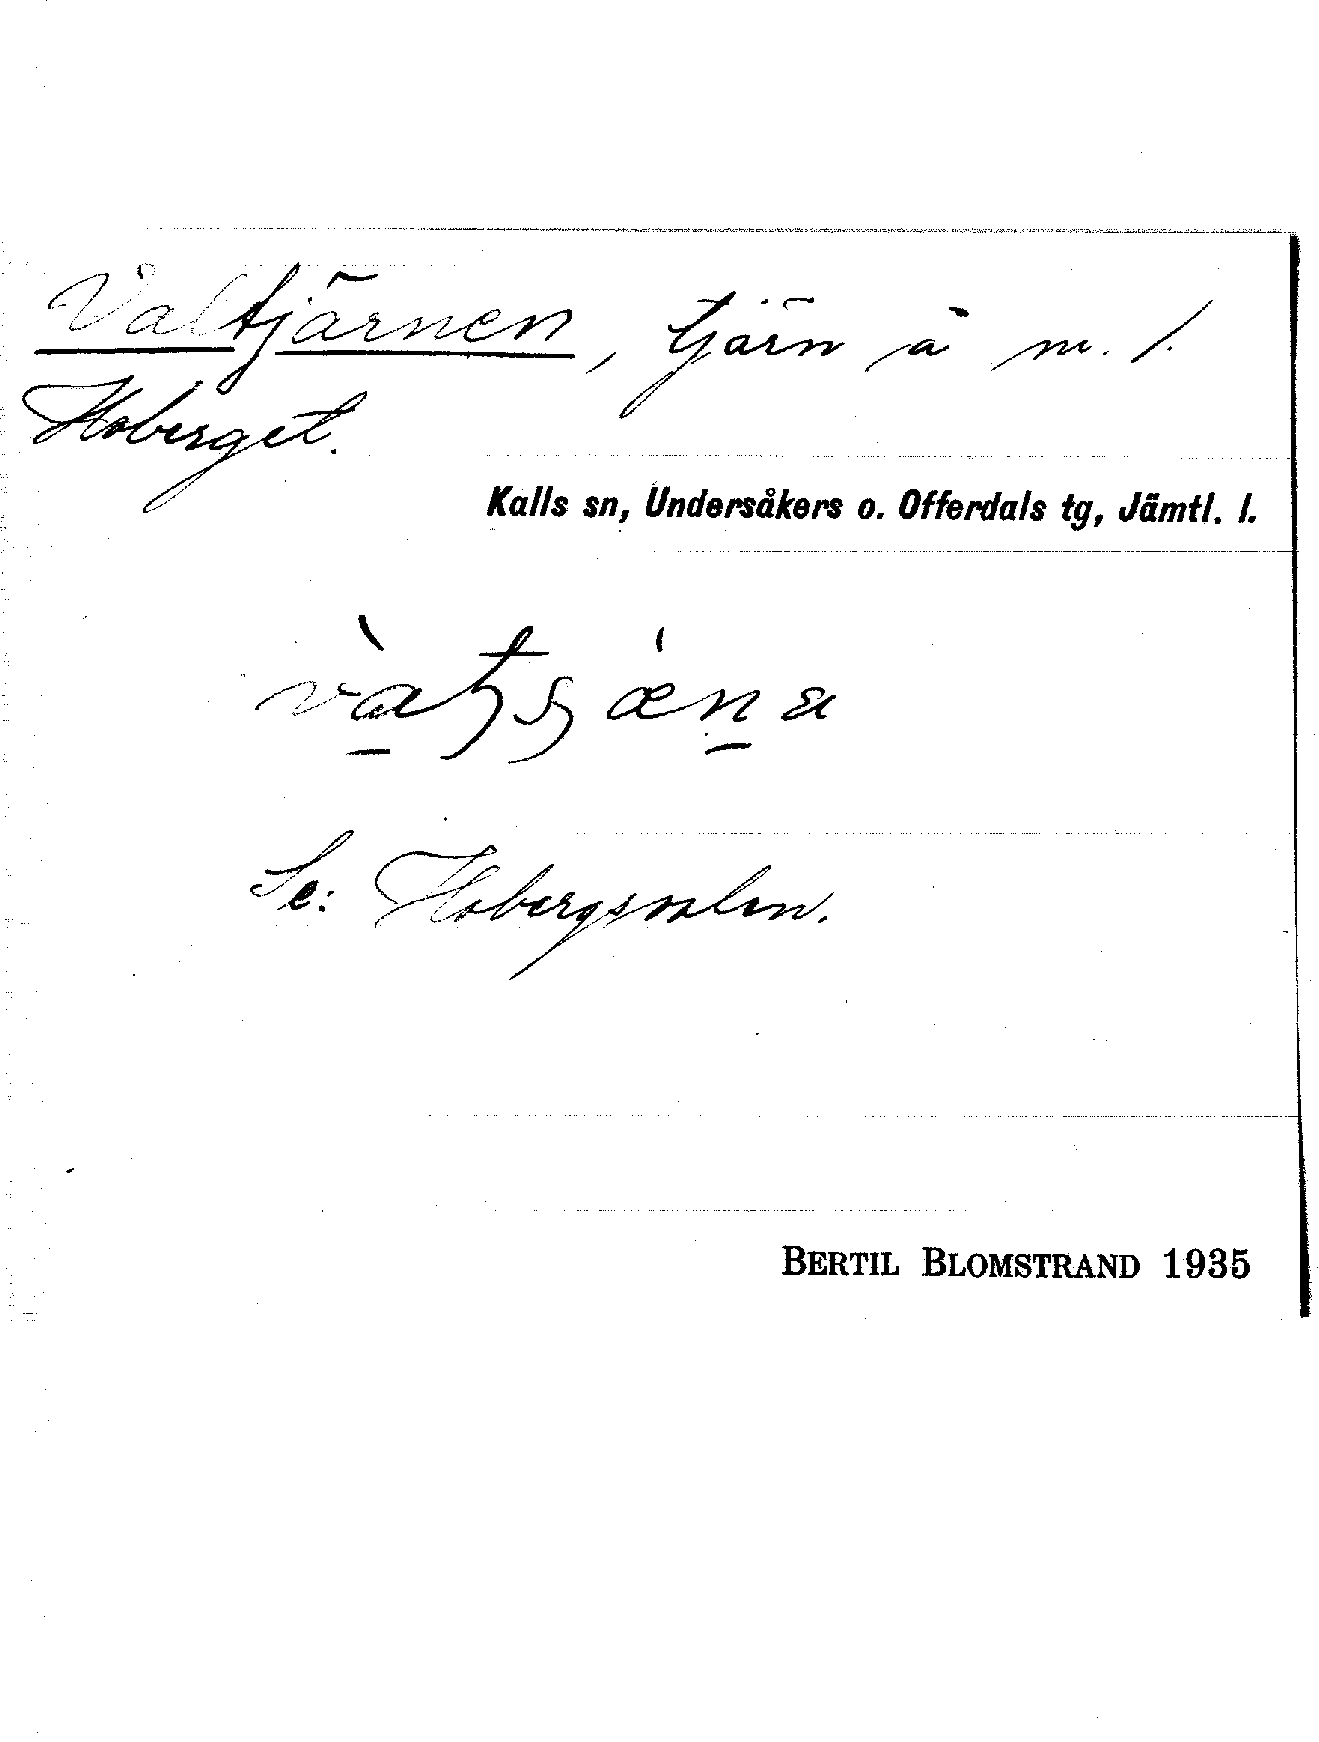 Valtjärnen, tjärn å m. l.
Hoberget.
Kalls sn, Undersåkers o. Offerdals tg, Jämtl. l.
Se: Hobergsvalen.
BERTIL BLOMSTRAND 1935